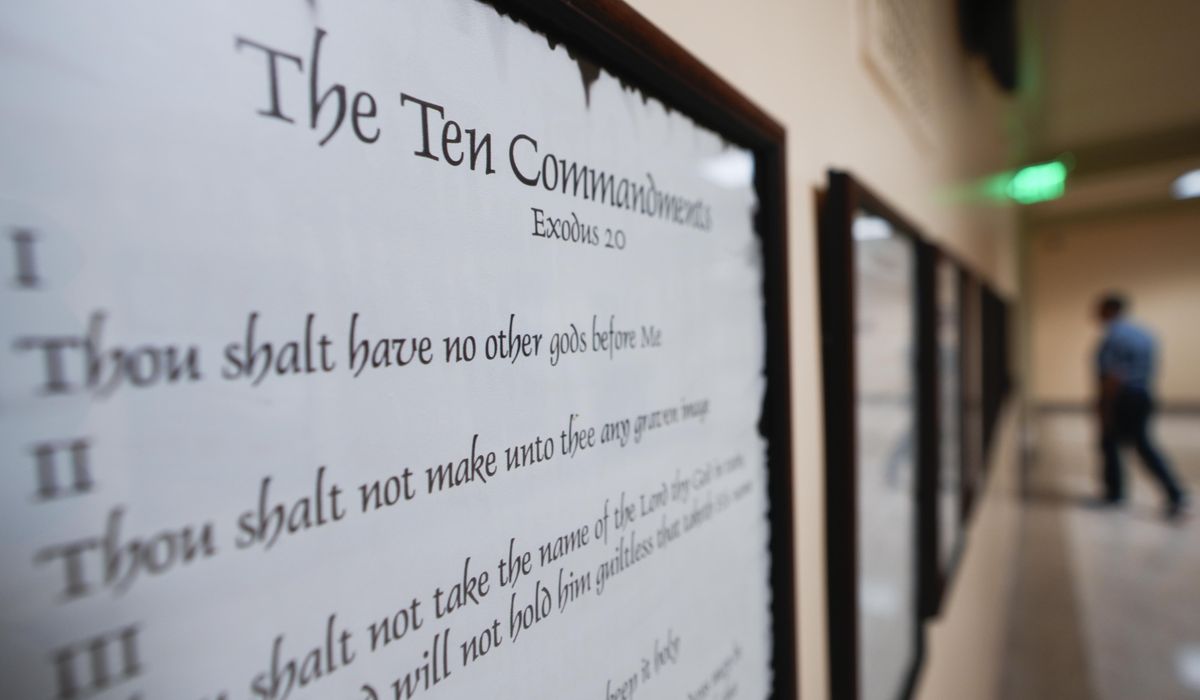 The Ten Commandments
Exodus 20
I
Thou shalt have no other gods before Me
II
Thou shalt not make unto thee any graven image
III
shalt not take the name of the Lord thy God in vain
will not hold him guiltless that taketh His name
keep it holy